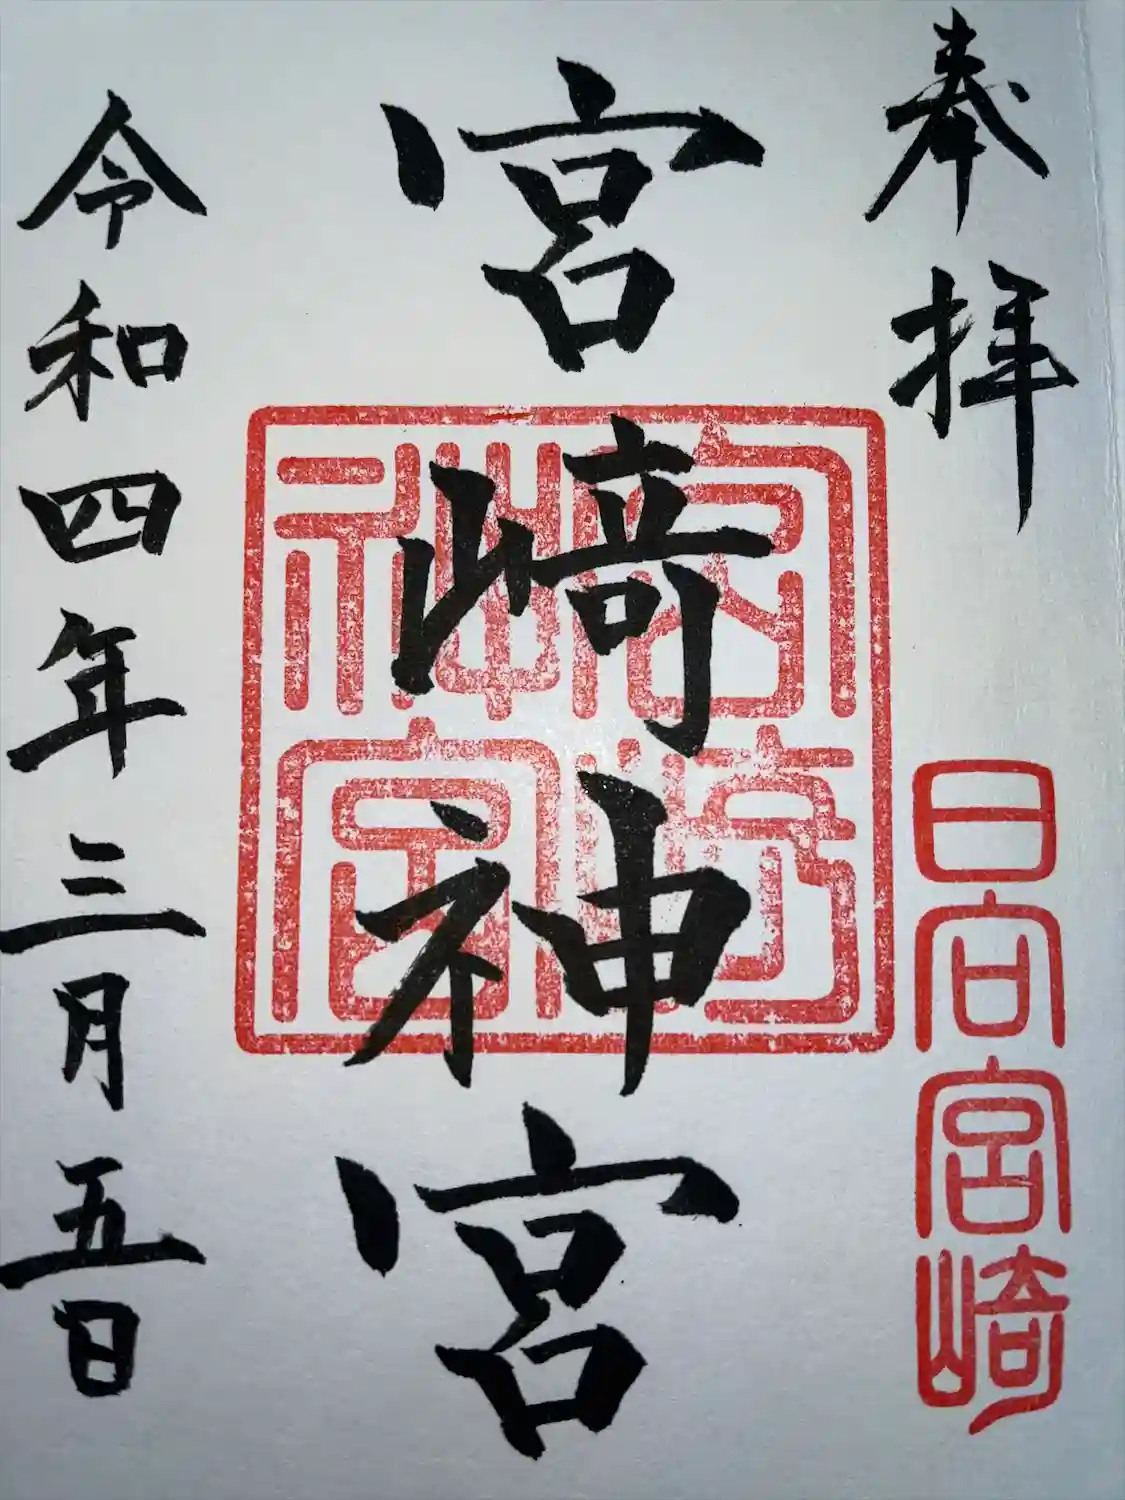 奉拝
日向宮崎
宮﨑神宮
宮崎神宮
令和四年三月五日